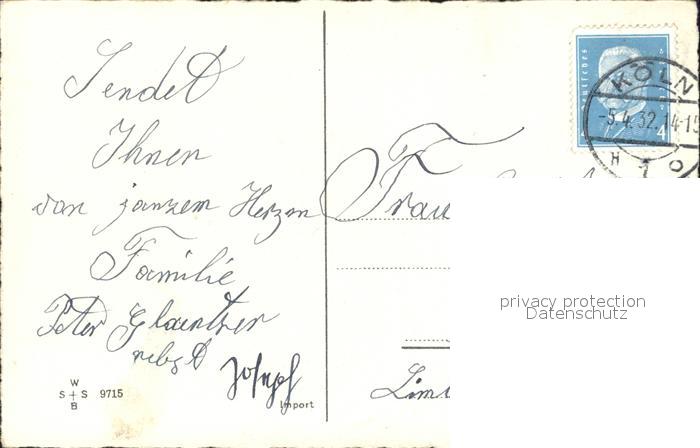 Sendet
Ihnen
von ganzem Herzen
Familie
Peter
nebst
Joseph
W
S + S 9715
B
Import
Deutsches
4
KÖLN
-5.4.32.14-15
H 1 o
Frau
privacy protection
Datenschutz